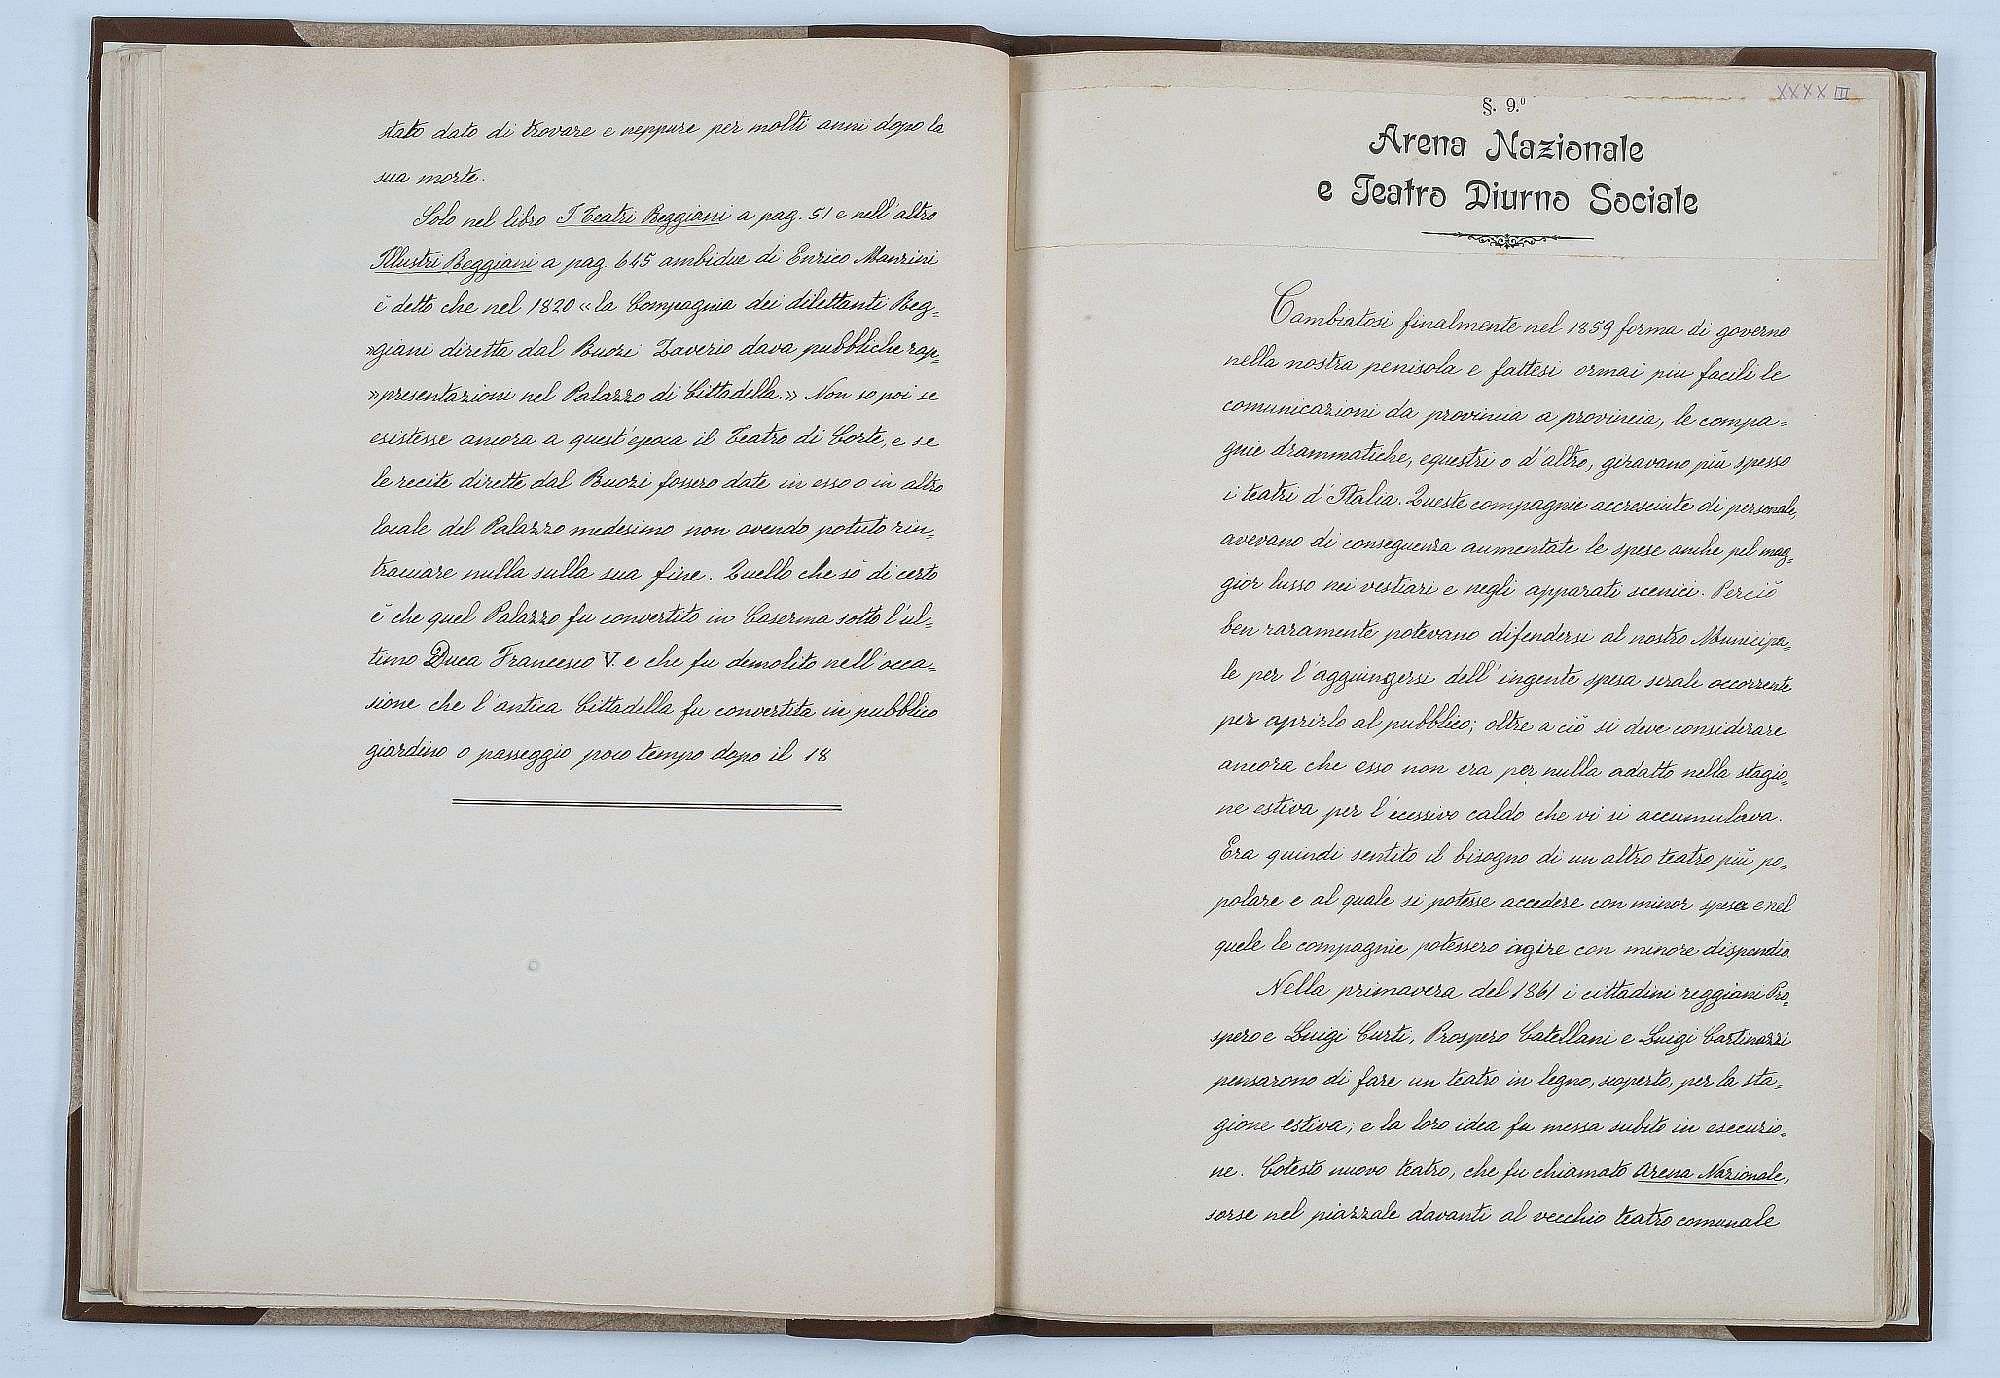 stato dato di trovare e neppure per molti anni dopo la
sua morte.
Solo nel libro I Teatri Reggiani a pag. 51 e nell'altro
Illustri Reggiani a pag. 645 ambidue di Enrico Manzini
è detto che nel 1820 «la Compagnia dei dilettanti Reg=
»giani diretta dal Buozi Zaverio dava pubbliche rap=
»presentazioni nel Palazzo di Cittadella.» Non so poi se
esistesse ancora a quest'epoca il Teatro di Corte, e se
le recite dirette dal Buozi fossero date in esso o in altro
locale del Palazzo medesimo non avendo potuto rin=
tracciare nulla sulla sua fine. Quello che sò di certo
è che quel Palazzo fu convertito in Caserma sotto l'ul=
timo Duca Francesco V. e che fu demolito nell'occa=
sione che l'antica Cittadella fu convertita in pubblico
giardino o passeggio poco tempo dopo il 18
XXXXIII
§. 9.º
Arena Nazionale
e Teatro Diurno Sociale
Cambiatosi finalmente nel 1859 forma di governo
nella nostra penisola e fattesi ormai piu facili le
comunicazioni da provincia a provincia, le compa=
gnie drammatiche, equestri o d'altro, giravano più spesso
i teatri d'Italia. Queste compagnie accresciute di personale,
avevano di conseguenza aumentate le spese anche pel mag=
gior lusso nei vestiari e negli apparati scenici. Perciò
ben raramente potevano difendersi al nostro Municipa=
le per l'aggiungersi dell'ingente spesa serale occorrente
per aprirlo al pubblico; oltre a ciò si deve considerare
ancora che esso non era per nulla adatto nella stagio=
ne estiva per l'ecessivo caldo che vi si accumulava.
Era quindi sentito il bisogno di un altro teatro più po=
polare e al quale si potesse accedere con minor spesa e nel
quele le compagnie potessero agire con minore dispendio.
Nella primavera del 1861 i cittadini reggiani Pro=
spero e Luigi Curti, Prospero Catellani e Luigi Cartinazzi
pensarono di fare un teatro in legno, scoperto, per la sta=
gione estiva; e la loro idea fu messa subito in esecuzio=
ne. Cotesto nuovo teatro, che fu chiamato Arena Nazionale,
sorse nel piazzale davanti al vecchio teatro comunale